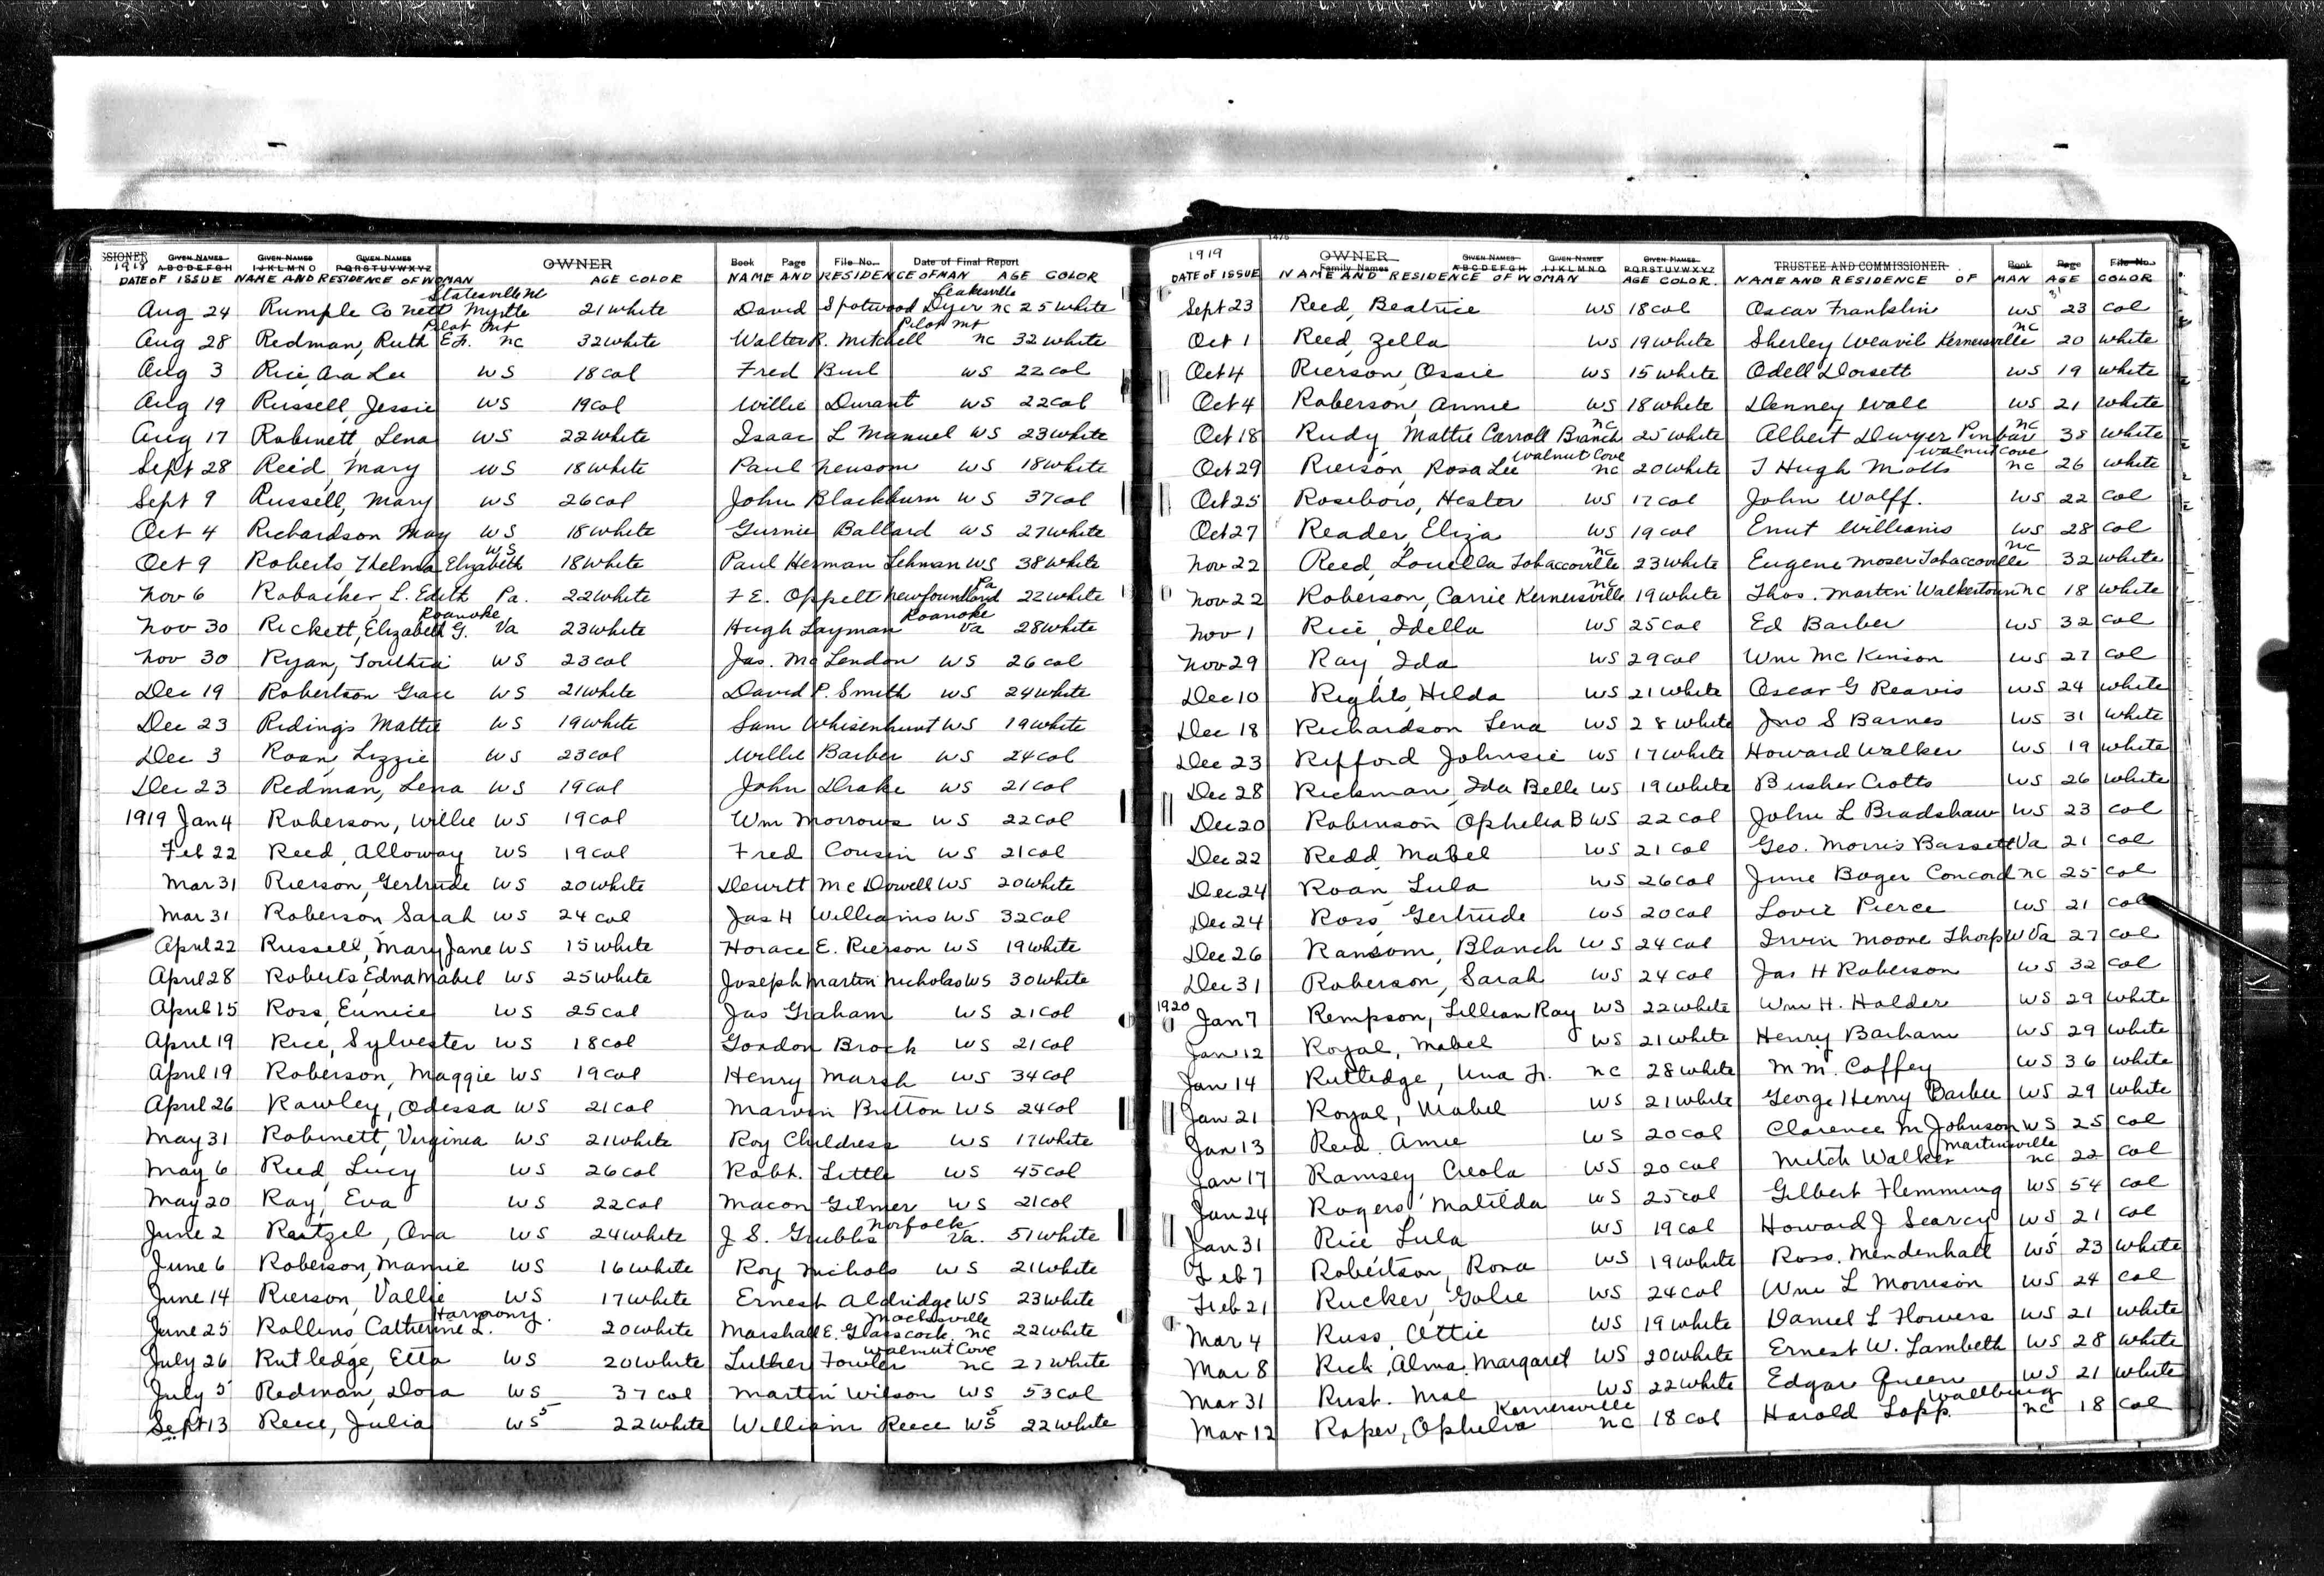 SIONER GIVEN NAMES ABCDEFGH GIVEN NAMES IJKLMNO GIVEN NAMES PQRSTUVWXYZ OWNER Book Page File No. Date of Final Report
1918
DATE OF ISSUE NAME AND RESIDENCE OF WOMAN AGE COLOR NAME AND RESIDENCE OF MAN AGE COLOR
Aug 24 Rumple Conett Myrtle Statesville NC 21 white David Spotwood Dyer Leaksville NC 25 white
Aug 28 Redman, Ruth Ef. Pilot Mt NC 32 white Walter R. Mitchell Pilot Mt NC 32 white
Aug 3 Rice, Ara Lee WS 18 col Fred Buel WS 22 col
Aug 19 Russell, Jessie WS 19 col Willie Durant WS 22 col
Aug 17 Robinett, Lena WS 22 white Isaac L Manuel WS 23 white
Sept 28 Reid, Mary WS 18 white Paul Newsom WS 18 white
Sept 9 Russell, Mary WS 26 col John Blackburn WS 37 col
Oct 4 Richardson May WS 18 white Gurnie Ballard WS 27 white
Oct 9 Roberts, Thelma Elizabeth WS 18 white Paul Herman Lehman WS 38 white
Nov 6 Robacker, L. Edith Pa. 22 white F E. Oppelt Newfoundland Pa 22 white
Nov 30 Rickett, Elizabeth G. Roanoke Va 23 white Hugh Layman Roanoke Va 28 white
Nov 30 Ryan, Southia WS 23 col Jas. McLendon WS 26 col
Dec 19 Robertson Grace WS 21 white David P. Smith WS 24 white
Dec 23 Ridings Mattie WS 19 white Sam Whisenhunt WS 19 white
Dec 3 Roan, Lizzie WS 23 col Willie Barber WS 24 col
Dec 23 Redman, Lena WS 19 col John Drake WS 21 col
1919 Jan 4 Roberson, Willie WS 19 col Wm Morrows WS 22 col
Feb 22 Reed, Alloway WS 19 col Fred Cousin WS 21 col
Mar 31 Rierson, Gertrude WS 20 white Dewitt McDowell WS 20 white
Mar 31 Roberson, Sarah WS 24 col Jas H Williams WS 32 col
April 22 Russell, Mary Jane WS 15 white Horace E. Rierson WS 19 white
April 28 Roberts, Edna Mabel WS 25 white Joseph Martin Nicholas WS 30 white
April 15 Ross, Eunice WS 25 col Jas Graham WS 21 col
April 19 Rice, Sylvester WS 18 col Gordon Brock WS 21 col
April 19 Roberson, Maggie WS 19 col Henry Marsh WS 34 col
April 26 Rawley, Odessa WS 21 col Marvin Britton WS 24 col
May 31 Robinett, Virginia WS 21 white Roy Childress WS 17 white
May 6 Reed, Lucy WS 26 col Robt. Little WS 45 col
May 20 Ray, Eva WS 22 col Macon Gilmer WS 21 col
June 2 Ratzel, Ona WS 24 white J S. Grubbs Norfolk Va. 51 white
June 6 Roberson, Mamie WS 16 white Roy Nichols WS 21 white
June 14 Rierson, Vallie WS 17 white Ernest Aldridge WS 23 white
June 25 Rollins, Catherine L. Harmony. 20 white Marshall E. Glasscock Mocksville NC 22 white
July 26 Rutledge, Etta WS 20 white Luther Fowler Walnut Cove NC 27 white
July 5 Redman, Dora WS 37 col Martin Wilson WS 53 col
Sept 13 Reece, Julia WS 22 white William Reece WS 22 white
1475
1919 OWNER Family Names GIVEN NAMES ABCDEFGH GIVEN NAMES IJKLMNO GIVEN NAMES PQRSTUVWXYZ TRUSTEE AND COMMISSIONER Book Page File No.
DATE OF ISSUE NAME AND RESIDENCE OF WOMAN AGE COLOR. NAME AND RESIDENCE OF MAN AGE COLOR
Sept 23 Reed, Beatrice WS 18 col Oscar Franklin WS 23 col
Oct 1 Reed, Zella WS 19 white Sherley Weavil Kernersville NC 20 white
Oct 4 Rierson, Ossie WS 15 white Odell Dorsett WS 19 white
Oct 4 Roberson, Annie WS 18 white Denney Wall WS 21 white
Oct 18 Rudy, Mattie Carroll Branch NC 25 white Albert Dwyer NC 38 white
Oct 29 Rierson, Rosa Lee Walnut Cove NC 20 white J Hugh Motts Walnut Cove NC 26 white
Oct 25 Roseboro, Hester WS 17 col John Wolff. WS 22 col
Oct 27 Reader, Eliza WS 19 col Ernut Williams WS 28 col
Nov 22 Reed, Louella Tobaccoville NC 23 white Eugene Moser Tobaccoville NC 32 white
Nov 22 Roberson, Carrie Kernersville NC 19 white Thos. Martin Walkertown NC 18 white
Nov 1 Rice, Idella WS 25 col Ed Barber WS 32 col
Nov 29 Ray, Ida WS 29 col Wm McKinson WS 27 col
Dec 10 Rights, Hilda WS 21 white Oscar G Reavis WS 24 white
Dec 18 Richardson Lena WS 28 white Jno S Barnes WS 31 white
Dec 23 Rifford Johnsie WS 17 white Howard Walker WS 19 white
Dec 28 Rickman, Ida Belle WS 19 white Busher Crotts WS 26 white
Dec 20 Robinson Ophelia B WS 22 col John L Bradshaw WS 23 col
Dec 22 Redd Mabel WS 21 col Geo. Morris Bassett Va 21 col
Dec 24 Roan Lula WS 26 col June Boger Concord NC 25 col
Dec 24 Ross, Gertrude WS 20 col Lovie Pierce WS 21 col
Dec 26 Ransom, Blanch WS 24 col Irvin Moore Thorp W Va 27 col
Dec 31 Roberson, Sarah WS 24 col Jas H Roberson WS 32 col
1920 Jan 7 Rempson, Lillian Ray WS 22 white Wm H. Holder WS 29 white
Jan 12 Royal, Mabel WS 21 white Henry Barham WS 29 white
Jan 14 Rutledge, Una Fr. NC 28 white M M. Coffey WS 36 white
Jan 21 Royal, Mabel WS 21 white George Henry Barbee WS 29 white
Jan 13 Reid Amie WS 20 col Clarence M Johnson WS 25 col
Jan 17 Ramsey Creola WS 20 col Mitch Walker Martinsville NC 22 col
Jan 24 Rogers Matilda WS 25 col Gilbert Flemming WS 54 col
Jan 31 Rice Lula WS 19 col Howard J Searcy WS 21 col
Feb 7 Robertson, Rona WS 19 white Ross. Mendenhall WS 23 white
Feb 21 Rucker, Golie WS 24 col Wm L Morrison WS 24 col
Mar 4 Russ, Ottie WS 19 white Daniel L Flowers WS 21 white
Mar 8 Rich, Alma Margaret WS 20 white Ernest W. Lambeth WS 28 white
Mar 31 Rust. Mae WS 22 white Edgar Queen WS 21 white
Mar 12 Raper, Ophelia Kernersville NC 18 col Harold Lopp. Wallburg NC 18 col